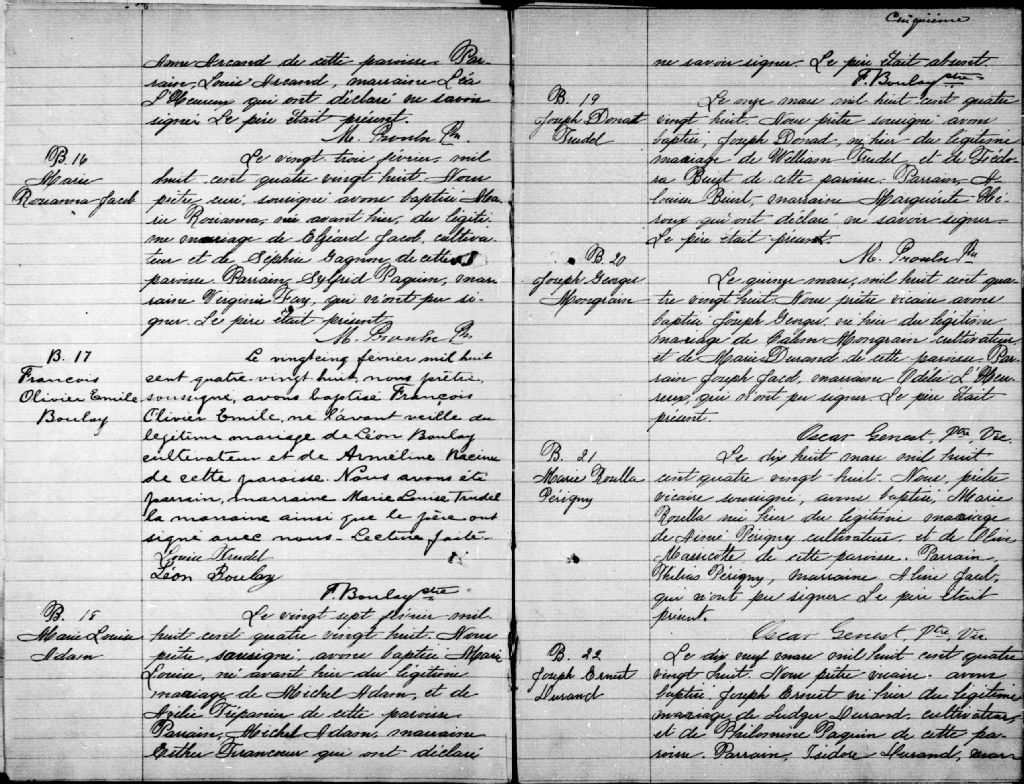 Anne Arcand de cette paroisse. Par-
rain, Louis Arcand, marraine Léa
L'Heureux qui ont déclaré ne savoir
signer. Le père était présent.
M. Proulx Ptre
B. 16
Marie
Rosianna Jacob
Le vingt trois février, mil
huit cent quatre vingt huit. Nous
prêtre curé, soussigné avons baptisé Ma-
rie Rosianna, née avant hier, du légiti-
me mariage de Elzéard Jacob, cultiva-
teur et de Sophie Gagnon, de cette
paroisse Parrain, Sylfrid Paquin, mar-
raine Virginie Fay, qui n'ont pu si-
gner. Le père était présent.
M. Proulx Ptre
B. 17
François
Olivier Emile
Boulay
Le vingtcinq février mil huit
cent quatre-vingt huit, nous prêtre,
soussigné, avons baptisé François
Olivier Emile, né l'avant veille du
légitime mariage de Léon Boulay
cultivateur et de Arméline Racine
de cette paroisse. Nous avons été
parrain, marraine Marie Louise Trudel
la marraine ainsi que le père ont
signé avec nous - Lecture faite.
Louise Trudel
Léon Boulay
F. Boulay ptre
B. 18
Marie Louise
Adam
Le vingt sept février mil
huit cent quatre vingt huit. Nous
prêtre, soussigné, avons baptisé Marie
Louise, né avant hier du légitime
mariage de Michel Adam, et de
Trépanier de cette paroisse.
Parrain, Michel Adam, marraine
Esther Francoeur qui ont déclaré
Cinquième
ne savoir signer. Le père était absent.
F. Boulay ptre
B. 19
Joseph Donat
Trudel
Le onze mars mil huit cent quatre
vingt huit. Nous prêtre soussigné avons
baptisé, Joseph Donad, né hier du légitime
mariage de William Trudel, et de Fédo-
ra Buist de cette paroisse. Parrain, A
louise Buist, marraine Marguérite Hé-
roux qui ont déclaré ne savoir signer.
Le père était présent.
M. Proulx Ptre
B. 20
Joseph Georges
Mongrain
Le quinze mars, mil huit cent qua-
tre vingt huit. Nous prêtre vicaire avons
baptisé Joseph Georges, né hier du légitime
mariage de Mongrain cultivateur
et de Marie Durand, de cette paroisse. Par-
rain Joseph Jacob, marraine Odélie L'Heu-
reux, qui n'ont pu signer. Le père était
présent.
Oscar Genest, Ptre, Vic.
B. 21
Marie Rosilla
Périgny
Le dix huit mars mil huit
cent quatre vingt huit. Nous, prêtre
vicaire soussigné, avons baptisé, Marie
Rosilla née hier du légitime mariage
de Périgny cultivateur, et de Olive
Marricotte, de cette paroisse. Parrain
Philias Périgny, marraine Aline Jacob,
qui n'ont pu signer. Le père était
présent.
Oscar Genest, Ptre, Vic.
B. 22
Joseph Ernest
Durand
Le dix neuf mars mil huit cent quatre
vingt huit. Nous prêtre vicaire avons
baptisé Joseph Ernest né hier du légitime
mariage de Ludger Durand, cultivateur,
et de Philomine Paquin de cette pa-
roisse. Parrain, Isidore Durand, mar